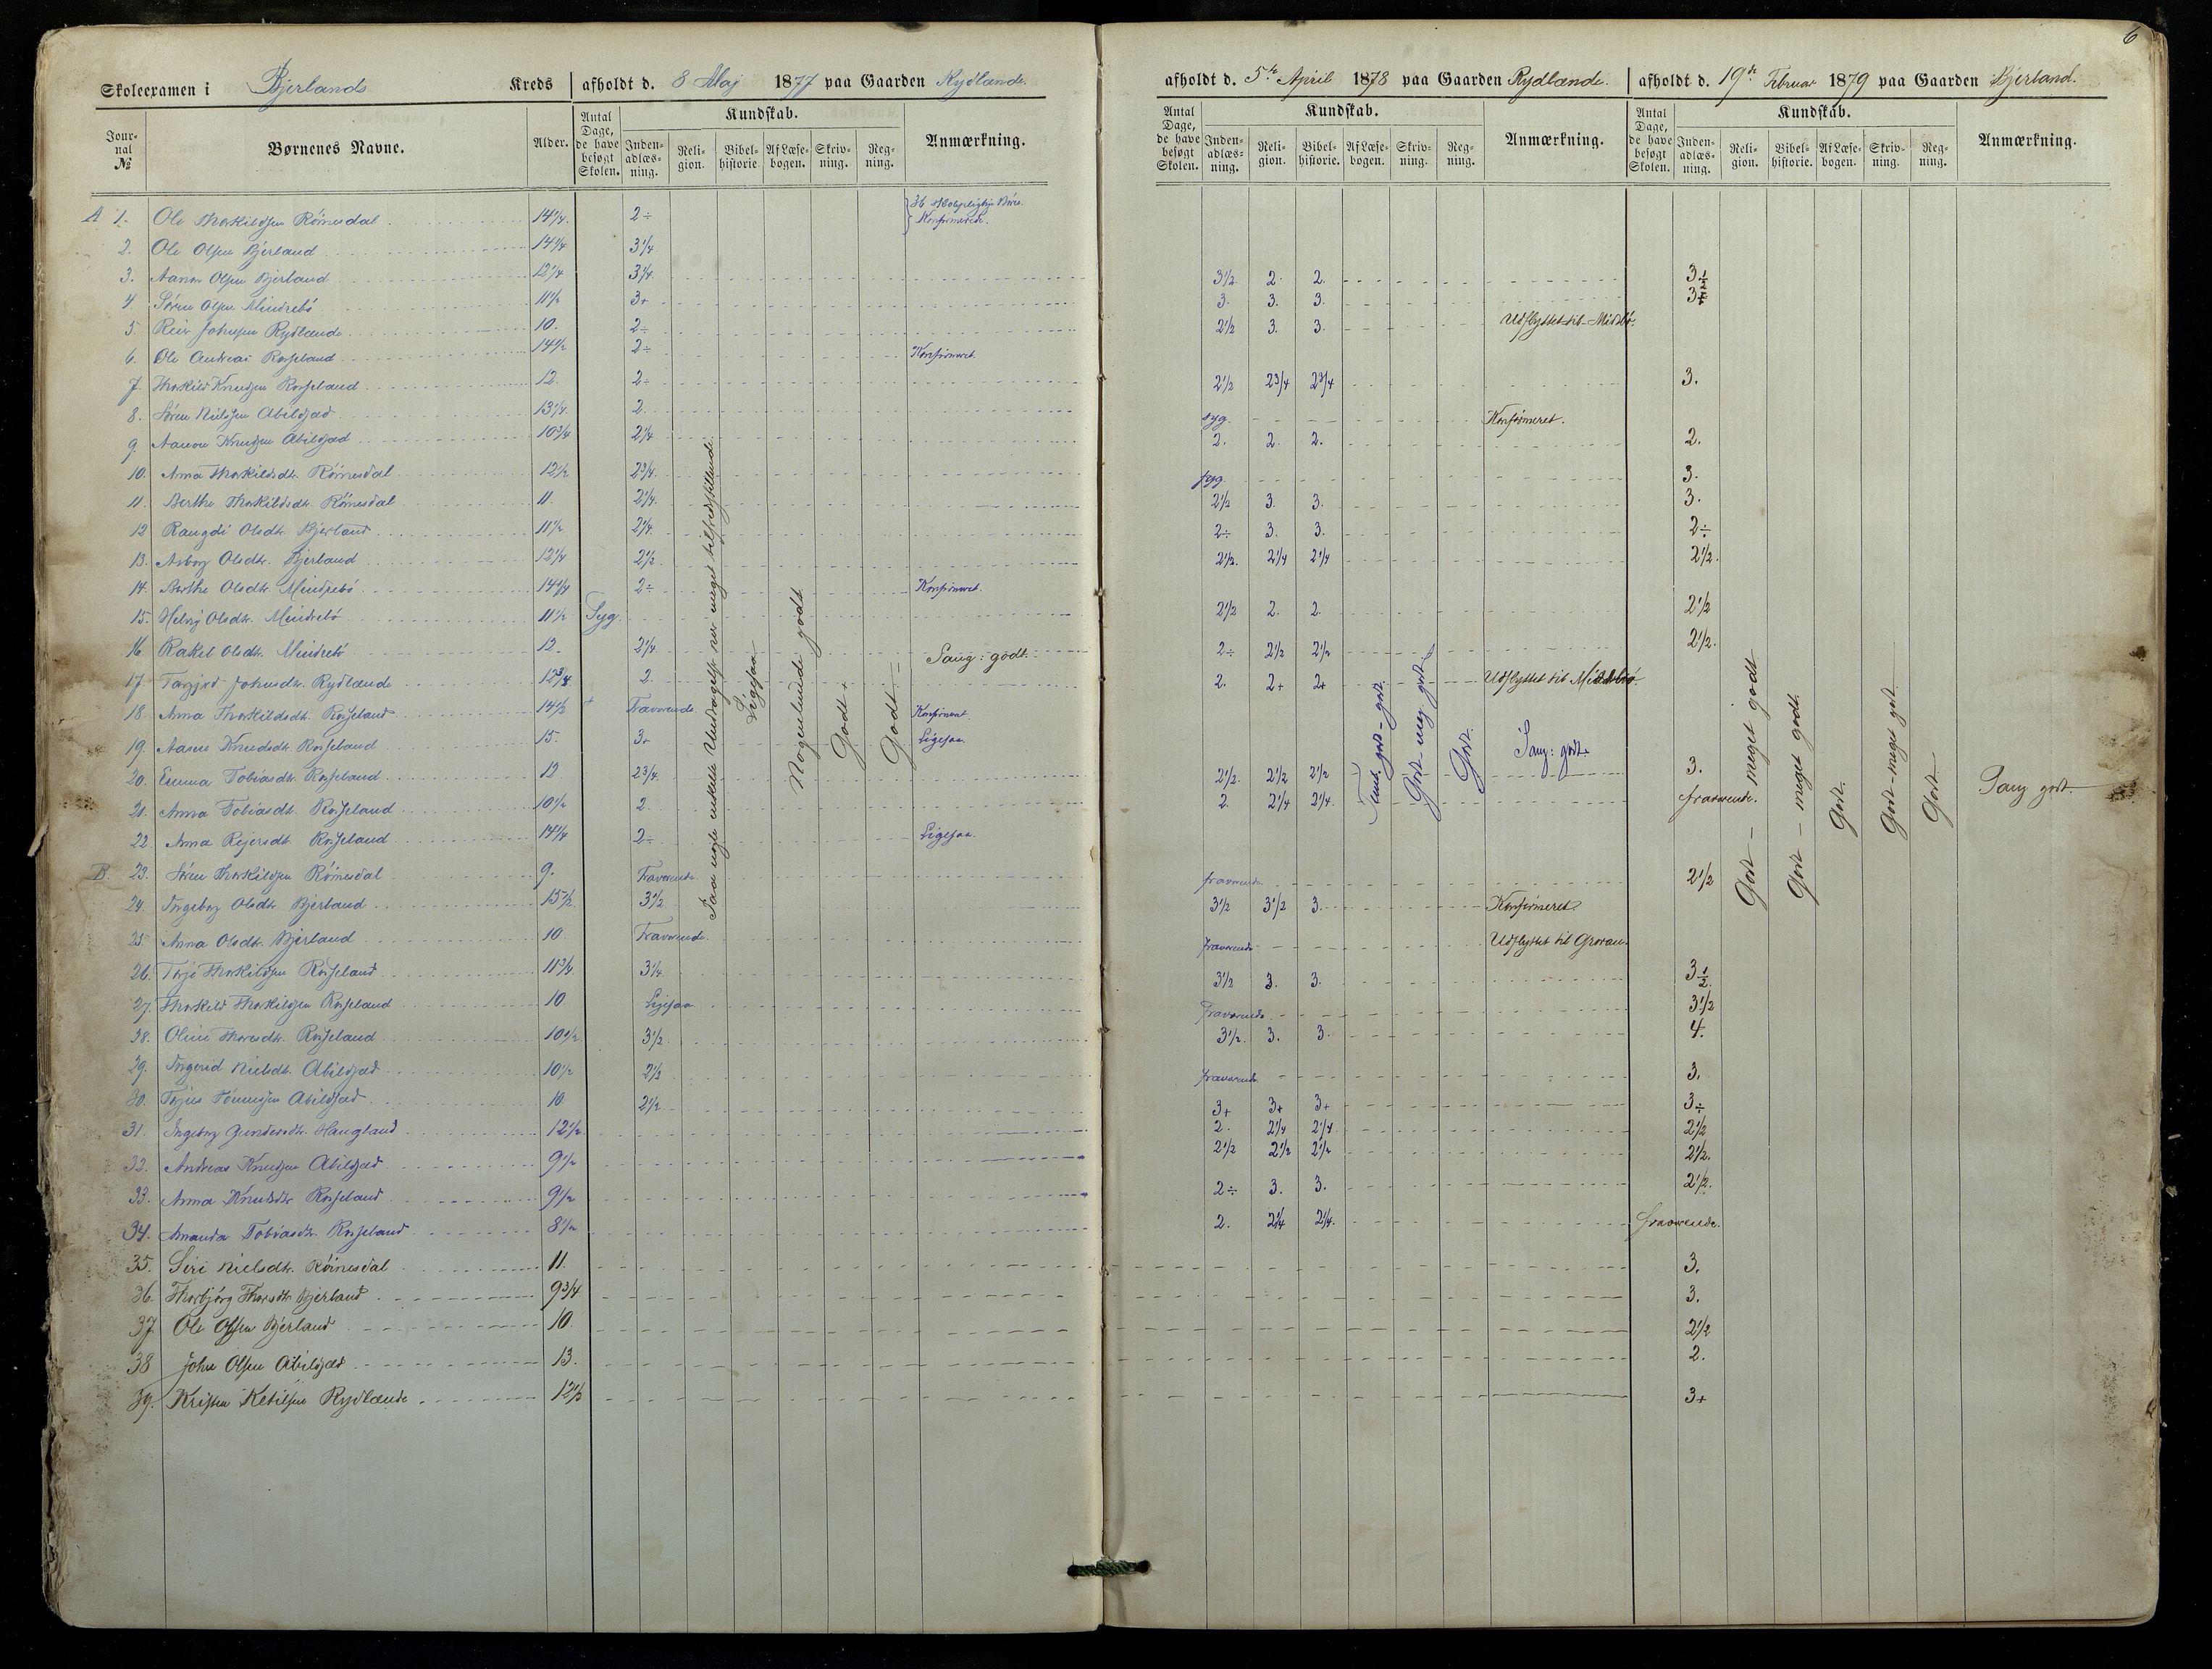 6
Skoleexamen i Bjerlands Kreds afholdt d. 8 Maj 1877 paa Gaarden Rydlænde.
afholdt d. 5te April 1878 paa Gaarden Rydlænde. afholdt d. 19de Februar 1879 paa Gaarden Bjerland.
Jour-nal № Børnenes Navne. Alder. Antal Dage, de have besøgt Skolen. Kundskab. Inden-adlæs-ning. Reli-gion. Bibel-historie. Af Læse-bogen. Skriv-ning. Reg-ning. Anmærkning.
Antal Dage, de have besøgt Skolen. Kundskab. Inden-adlæs-ning. Reli-gion. Bibel-historie. Af Læse-bogen. Skriv-ning. Reg-ning. Anmærkning.
Antal Dage, de have besøgt Skolen. Kundskab. Inden-adlæs-ning. Reli-gion. Bibel-historie. Af Læse-bogen. Skriv-ning. Reg-ning. Anmærkning.
A 1. Ole Thorkildsen Römesdal 14 1/4. 2÷ Konfirmerede.
2. Ole Olsen Bjerland 14 1/4 3 1/4
3. Aanon Olsen Bjerland 12 1/4 3 1/4. 3 1/2. 2. 2. 3 1/2
4. Sören Olsen Mindrebö 11 1/2 3+ 3. 3. 3.
5. Reier Johnsen Rydlænde 10. 2÷ 2 1/2 3. 3. Udflyttet til
6. Ole Andreas Rosseland 14 1/2 2÷ Konfirmeret.
7. Thorkild Knudsen Rosseland 12. 2÷ 2 1/2 2 3/4 2 3/4 3.
8. Sören Nielssen Abildsæd 13 1/4. 2. syg. Konfirmeret.
9. Aanon Knudsen Abildsæd 10 3/4 2 1/4 2. 2. 2. 2.
10. Anna Thorkildsdtr. Römesdal 12 1/2 2 3/4. syg. 3.
11. Berthe Thorkildsdtr. Römesdal 11. 2 1/4. 2 1/2 3. 3. 3.
12 Rangdi Olsdtr. Bjerland 11 1/2 2 1/4. 2÷ 3. 3. 2÷
13. Asborg Olsdtr. Bjerland 12 1/4 2 1/2. 2 1/2. 2 1/4 2 1/4 2 1/2.
14. Berthe Olsdtr. Mindrebö 14 1/4 2÷ Konfirmeret.
15. Helvig Olsdtr. Mindrebö 11 1/2 Syg. 2 1/2 2. 2. 2 1/2
16. Rakel Olsdtr. Mindrebö 12. 2 1/4. Sang: godt. 2÷ 2 1/2 2 1/2 2 1/2.
17. Johnsdtr. Rydlænde 12 3/4. 2. 2. 2+ 2+ Udflyttet til
18. Anna Thorkildsdtr. Rosseland 14 1/2 Fraværende. Konfirmeret.
19. Aasne Knudsdtr. Rosseland 15. 3+ Ligesaa. Sang: godt.
20. Emma Tobiasdtr. Rosseland 12 2 3/4. 2 1/2. 2 1/2 2 1/2 3.
21. Anna Tobiasdtr. Rosseland 10 1/2 2. 2. 2 1/4 2 1/4. fraværende. Sang godt.
22. Anna Rejersdtr. Rosseland 14 1/4 2÷ Ligesaa.
B. 23. Sören Thorkildsen Römesdal 9. Fraværende. fraværende. 2 1/2
24. Ingeborg Olsdtr. Bjerland 15 1/2 3 1/2 3 1/2 3 1/2 3. Konfirmeret.
25. Anna Olsdtr. Bjerland 10 Fraværende. fraværende Udflyttet til
26. Terje Thorkildsen Rosseland 11 3/4 3 1/4. 3 1/2 3. 3. 3 1/2.
27. Thorkild Thorkildsen Rosseland 10 Ligesaa fraværende. 3 1/2
28. Oline Thoresdtr. Rosseland 10 1/2 3 1/2 3 1/2. 3. 3. 4.
29. Ingerid Nielsdtr. Abildsæd 10 1/2 2 1/2 fraværende 3.
30. Terjus Tönnessen Abildsæd 10 2 1/2 3+ 3+ 3+ 3÷
31. Ingeborg Gundersdtr. Haugland 12 1/2 2. 2 1/4 2 1/4. 2 1/2
32. Andreas Knudsen Abildsæd 9 1/2 2 1/2 2 1/2 2 1/2 2 1/2.
33. Anna Knudsdtr. Rosseland 9 1/2 2÷ 3. 3. 2 1/2.
34. Amanda Tobiasdtr. Rosseland 8 1/2 2. 2 1/4 2 1/4. fraværende.
35. Siri Nielsdtr. Römesdal 11. 3.
36. Thorbjörg Thoresdtr. Bjerland 9 3/4 3.
37. Ole Olsen Bjerland 10. 2 1/2
38 John Olsen Abildsæd 13. 2.
39. Kristen Ketilsen Rydlænde 12 1/2 3+
Paa nogle enkelte Undtagelser nær meget tilfredsstillende.
Ligesaa
Nogenlunde godt
Godt +
Godt =
godt - godt.
Godt - meg. godt
Godt.
Godt - meget godt
Godt - meget godt.
Godt.
Godt - meget godt
Godt